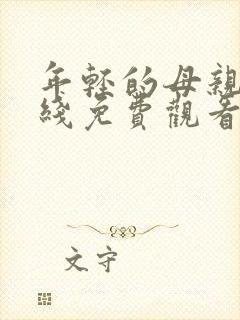 年輕的母親
綫免費觀看
文守